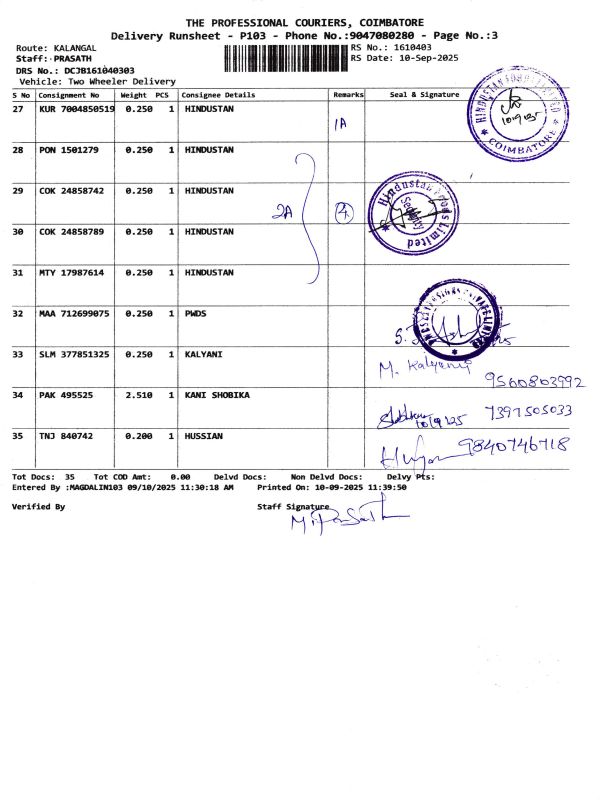 THE PROFESSIONAL COURIERS, COIMBATORE
Delivery Runsheet - P103 - Phone No.:9047080280 - Page No.:3
Route: KALANGAL
RS No.: 1610403
Staff: PRASATH
RS Date: 10-Sep-2025
DRS No.: DCJB161040303
Vehicle: Two Wheeler Delivery
S No Consignment No Weight PCS Consignee Details Remarks Seal & Signature
27 KUR 7004850519 0.250 1 HINDUSTAN 1A
10/9/25
COIMBATORE
28 PON 1501279 0.250 1 HINDUSTAN
29 COK 24858742 0.250 1 HINDUSTAN 2A 4
Hindustan Foods Limited
30 COK 24858789 0.250 1 HINDUSTAN
31 MTY 17987614 0.250 1 HINDUSTAN
32 MAA 712699075 0.250 1 PWDS
33 SLM 377851325 0.250 1 KALYANI M. Kalyani
9560803992
34 PAK 495525 2.510 1 KANI SHOBIKA
10/9/25 7397505033
35 TNJ 840742 0.200 1 HUSSIAN 9840746718
Tot Docs: 35 Tot COD Amt: 0.00 Delvd Docs: Non Delvd Docs: Delvy Pts:
Entered By :MAGDALIN103 09/10/2025 11:30:18 AM Printed On: 10-09-2025 11:39:50
Verified By Staff Signature